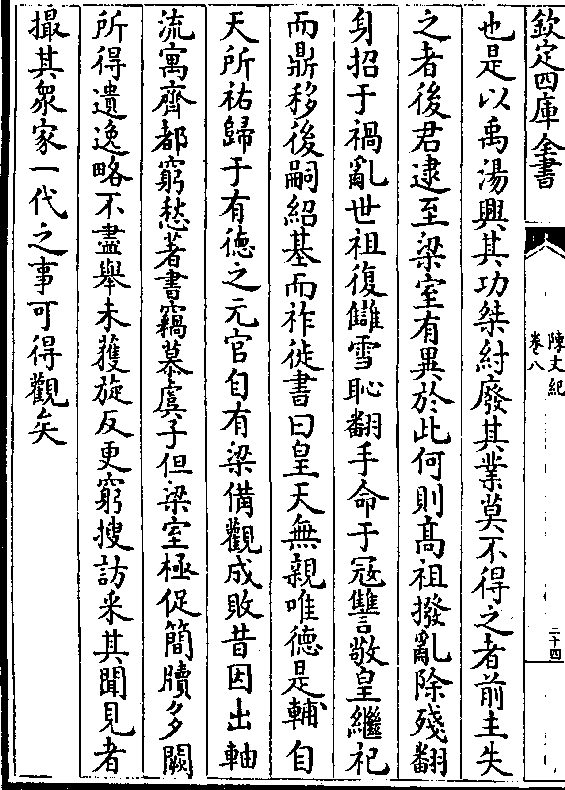 欽定四庫全書
陳文紀
卷八
二十四
也是以禹湯興其功桀紂廢其業莫不得之者前主失
之者後君逮至梁室有異於此何則髙祖撥亂除殘翻
身招于禍亂世祖復讎雪恥翻手命于冦讐敬皇繼祀
而鼎移後嗣紹基而祚徙書曰皇天無親唯徳是輔自
天所祐歸于有徳之元官自有梁備觀成敗昔因出軸
流寓齊都窮愁著書竊慕虞子但梁室極促簡牘多闕
所得遺逸略不盡舉未獲旋反更窮搜訪采其聞見者
撮其衆家一代之事可得觀矣